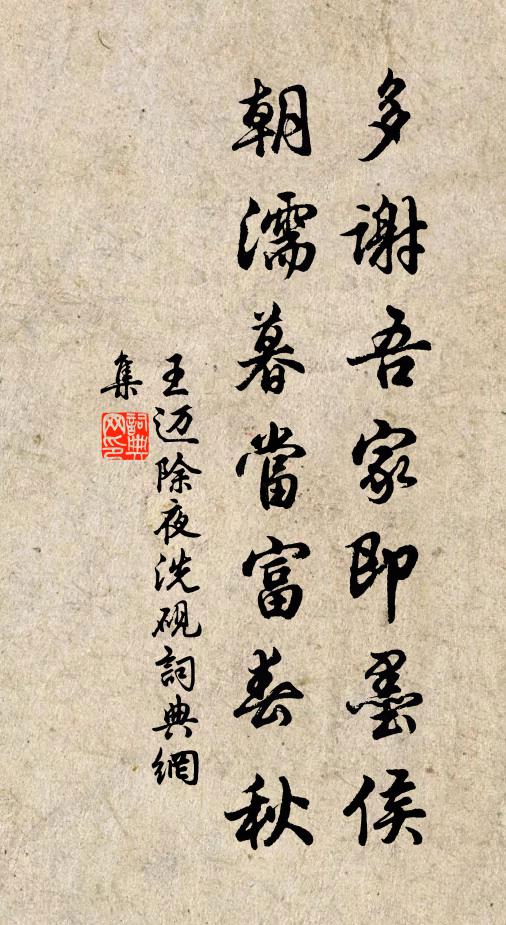 多謝吾家即墨侯
朝濡暮當富春秋
王迈除夜洗硯詞典網
集
詞典
网印